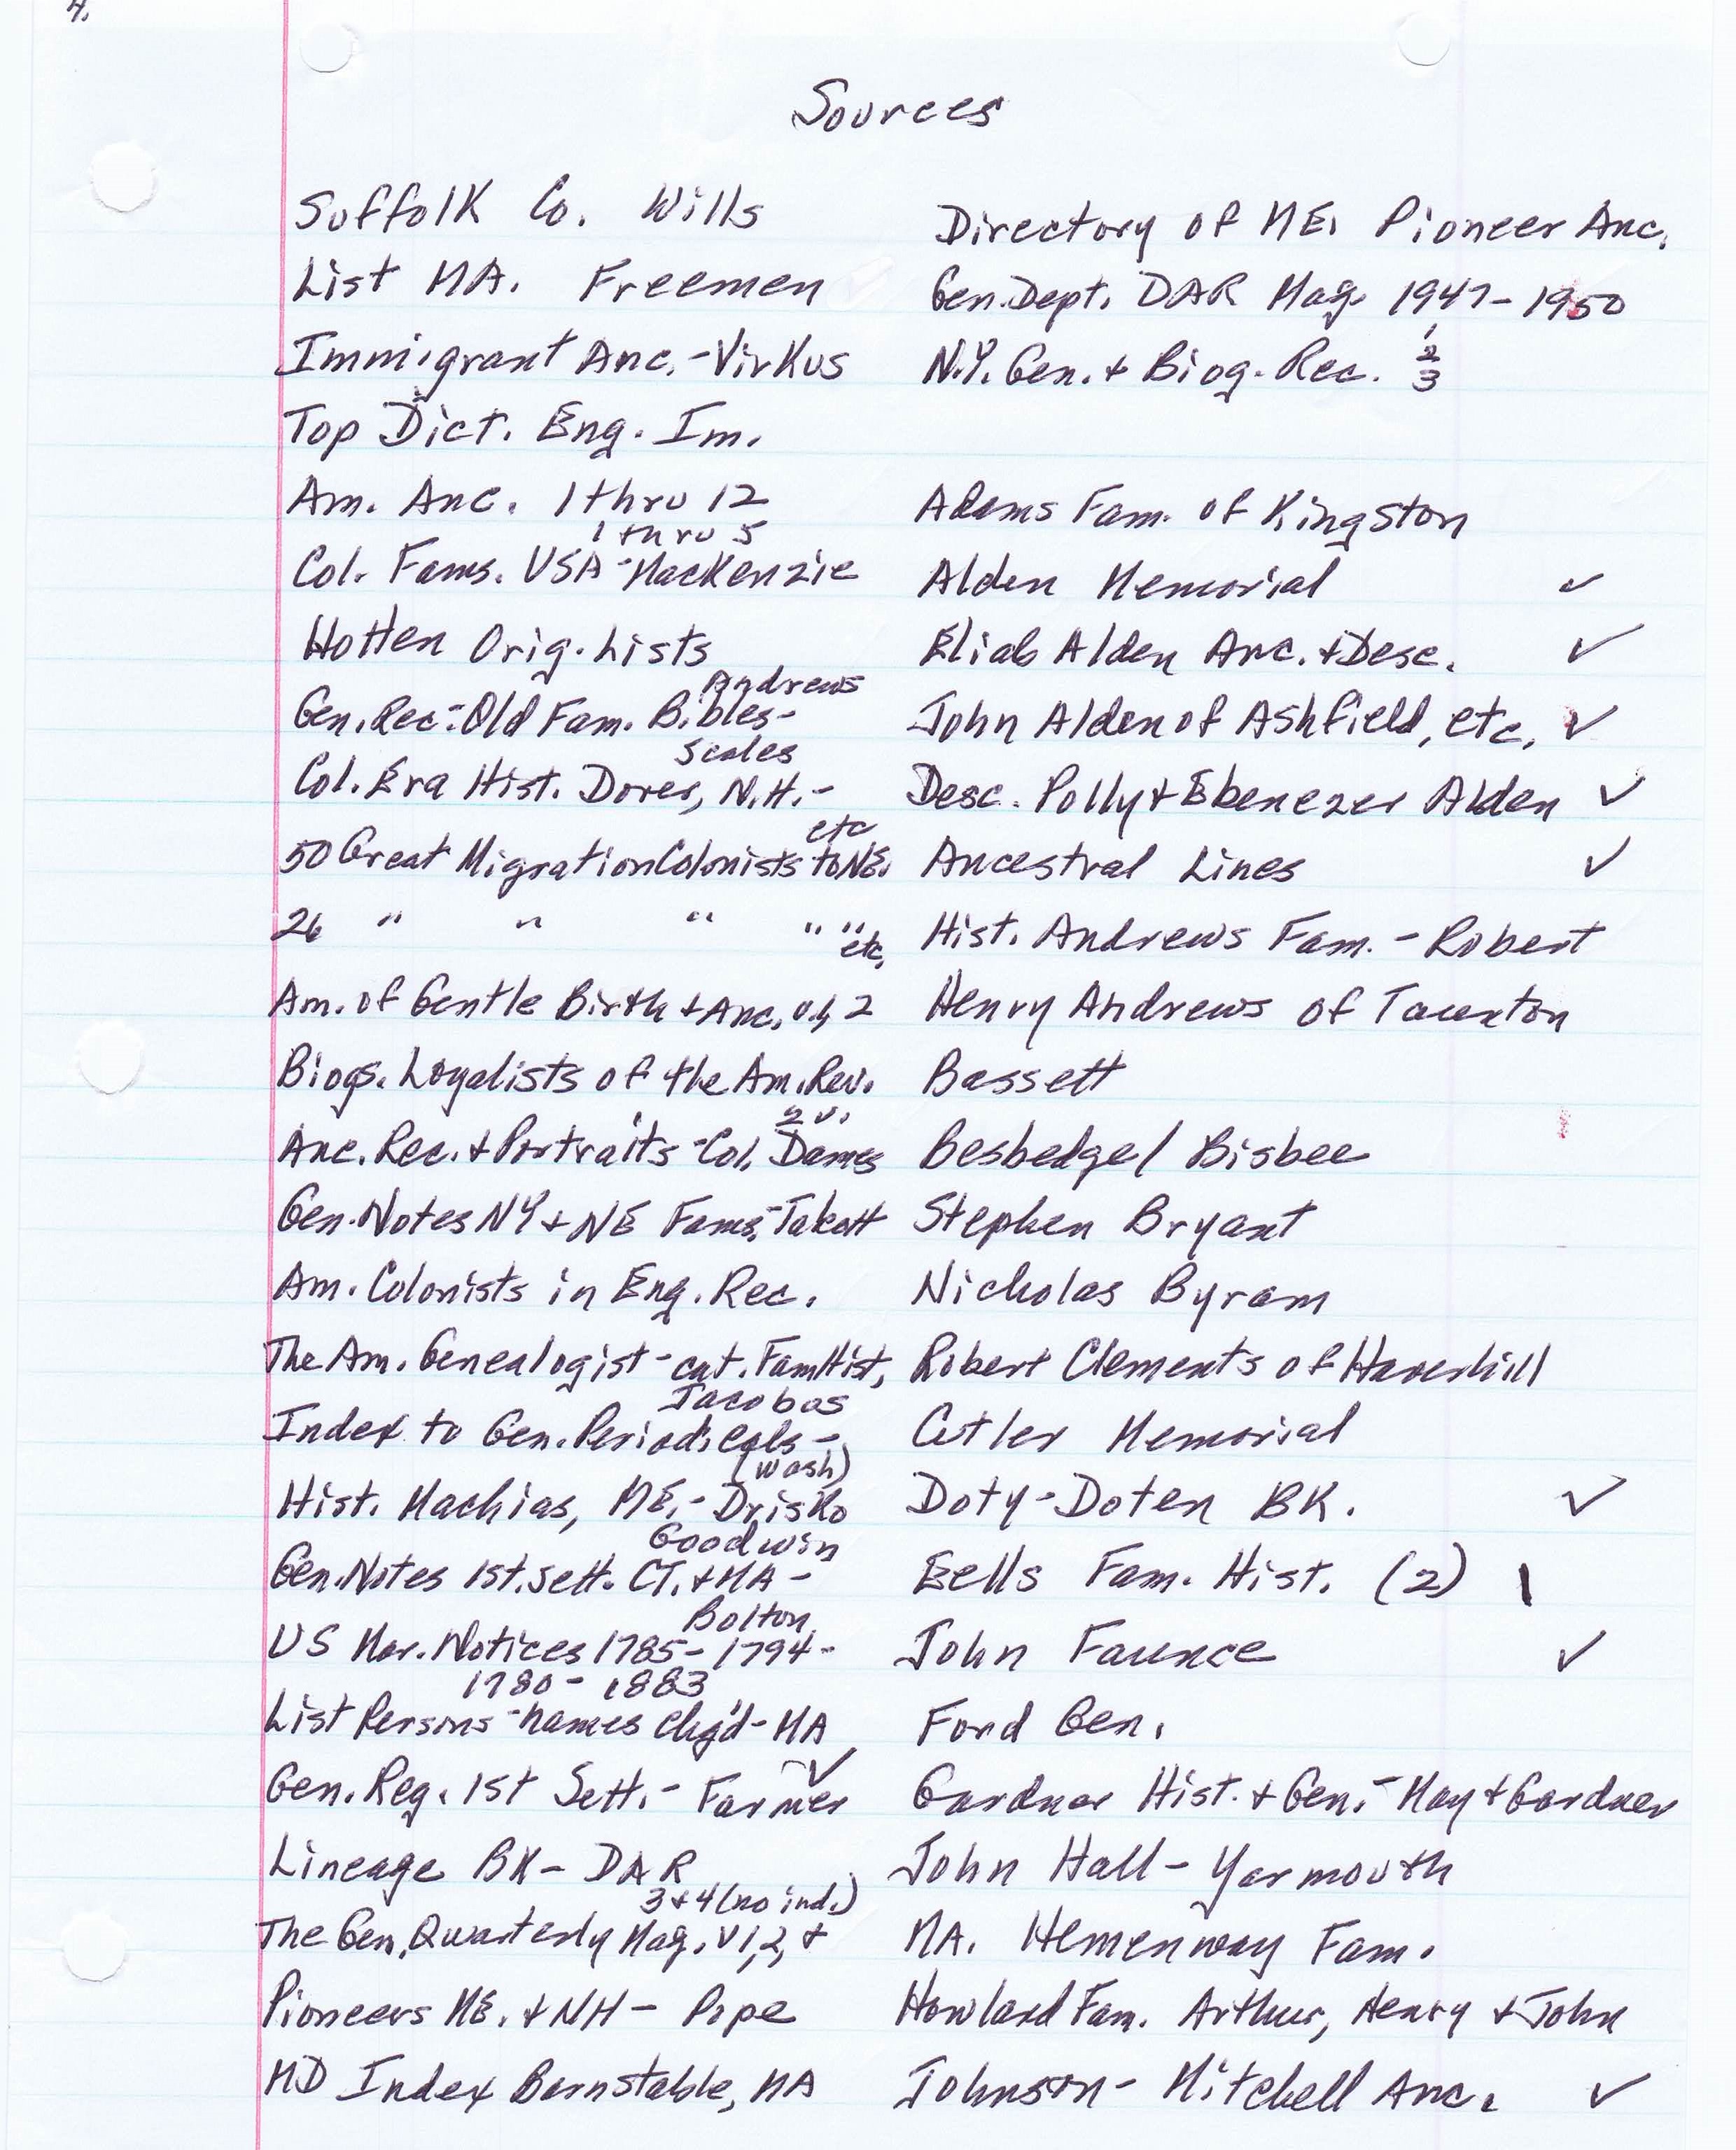 4.
Sources
Suffolk Co. Wills
List MA. Freemen
Immigrant Anc.-Virkus
Top Dict. Eng. Im.
Am. Anc. 1 thru 12
1 thru 5
Col. Fams. USA-MacKenzie
Hotten Orig. Lists
Andrews
Gen. Rec-Old Fam. Bibles-
Scales
Col. Era Hist. Dover, N.H.-
etc
50 Great Migration Colonists to NE.
26 " " " " "
etc.
Am. of Gentle Birth + Anc. v.1, 2
Biogs. Loyalists of the Am. Rev.
2 v.
Anc. Rec. + Portraits-Col. Dames
Gen. Notes NY + NE Fams.-Talcott
Am. Colonists in Eng. Rec.
The Am. Genealogist-cat. Fam Hist,
Jacobus
Index to Gen. Periodicals-
(Wash)
Hist. Machias, ME.-Drisko
Goodwin
Gen. Notes 1st. Sett. CT. + MA-
Bolton
US Mar. Notices 1785-1794-
1780-1883
List Persons-names chg'd-MA
✓
Gen. Reg. 1st Sett.-Farmer
Lineage BK-DAR
3+4 (no ind.)
The Gen. Quarterly Mag. v1,2, +
Pioneers ME. + NH-Pope
MD Index Barnstable, MA
Directory of ME. Pioneer Anc.
Gen. Dept. DAR Mag. 1947-1950
1
N.Y. Gen. + Biog. Rec. 2
3
Adams Fam. of Kingston
Alden Memorial ✓
Eliab Alden Anc. + Desc. ✓
John Alden of Ashfield, etc. ✓
Desc. Polly + Ebenezer Alden ✓
Ancestral Lines ✓
Hist. Andrews Fam.-Robert
Henry Andrews of Taunton
Bassett
Besbedge/Bisbee
Stephen Bryant
Nicholas Byram
Robert Clements of Haverhill
Cutler Memorial
Doty-Doten BK. ✓
Eells Fam. Hist. (2) 1
John Faunce ✓
Ford Gen.
Gardner Hist. + Gen.-May + Gardner
John Hall-Yarmouth
MA. Hemenway Fam.
Howland Fam. Arthur, Henry + John
Johnson-Mitchell Anc. ✓